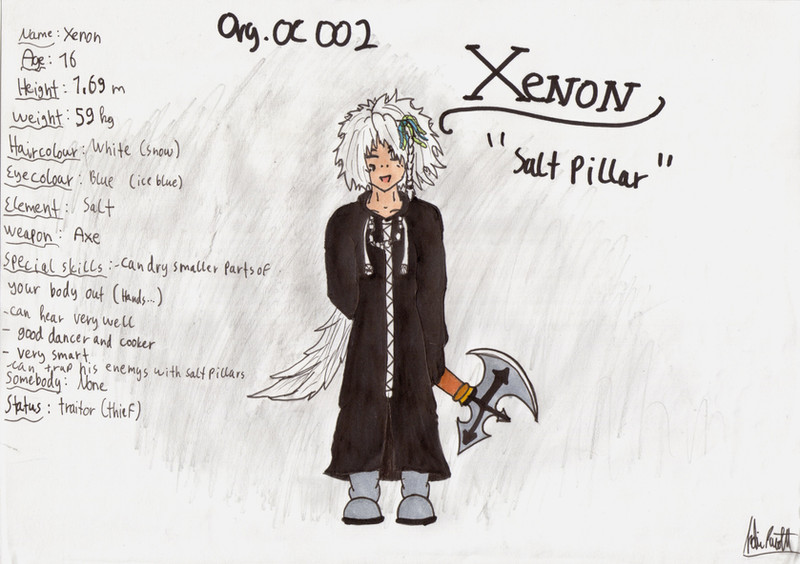 Org. OC 002
Name: Xenon
Age: 16
Height: 1.69 m
Weight: 59 kg
Haircolour: White (snow)
Eyecolour: Blue (ice blue)
Element: Salt
Weapon: Axe
Special skills: -can dry smaller parts of
your body out (Hands...)
-can hear very well
- good dancer and cooker
- very smart
-can trap his enemys with salt pillars
Somebody: None
Status: traitor (thief)
Xenon
"Salt Pillar"